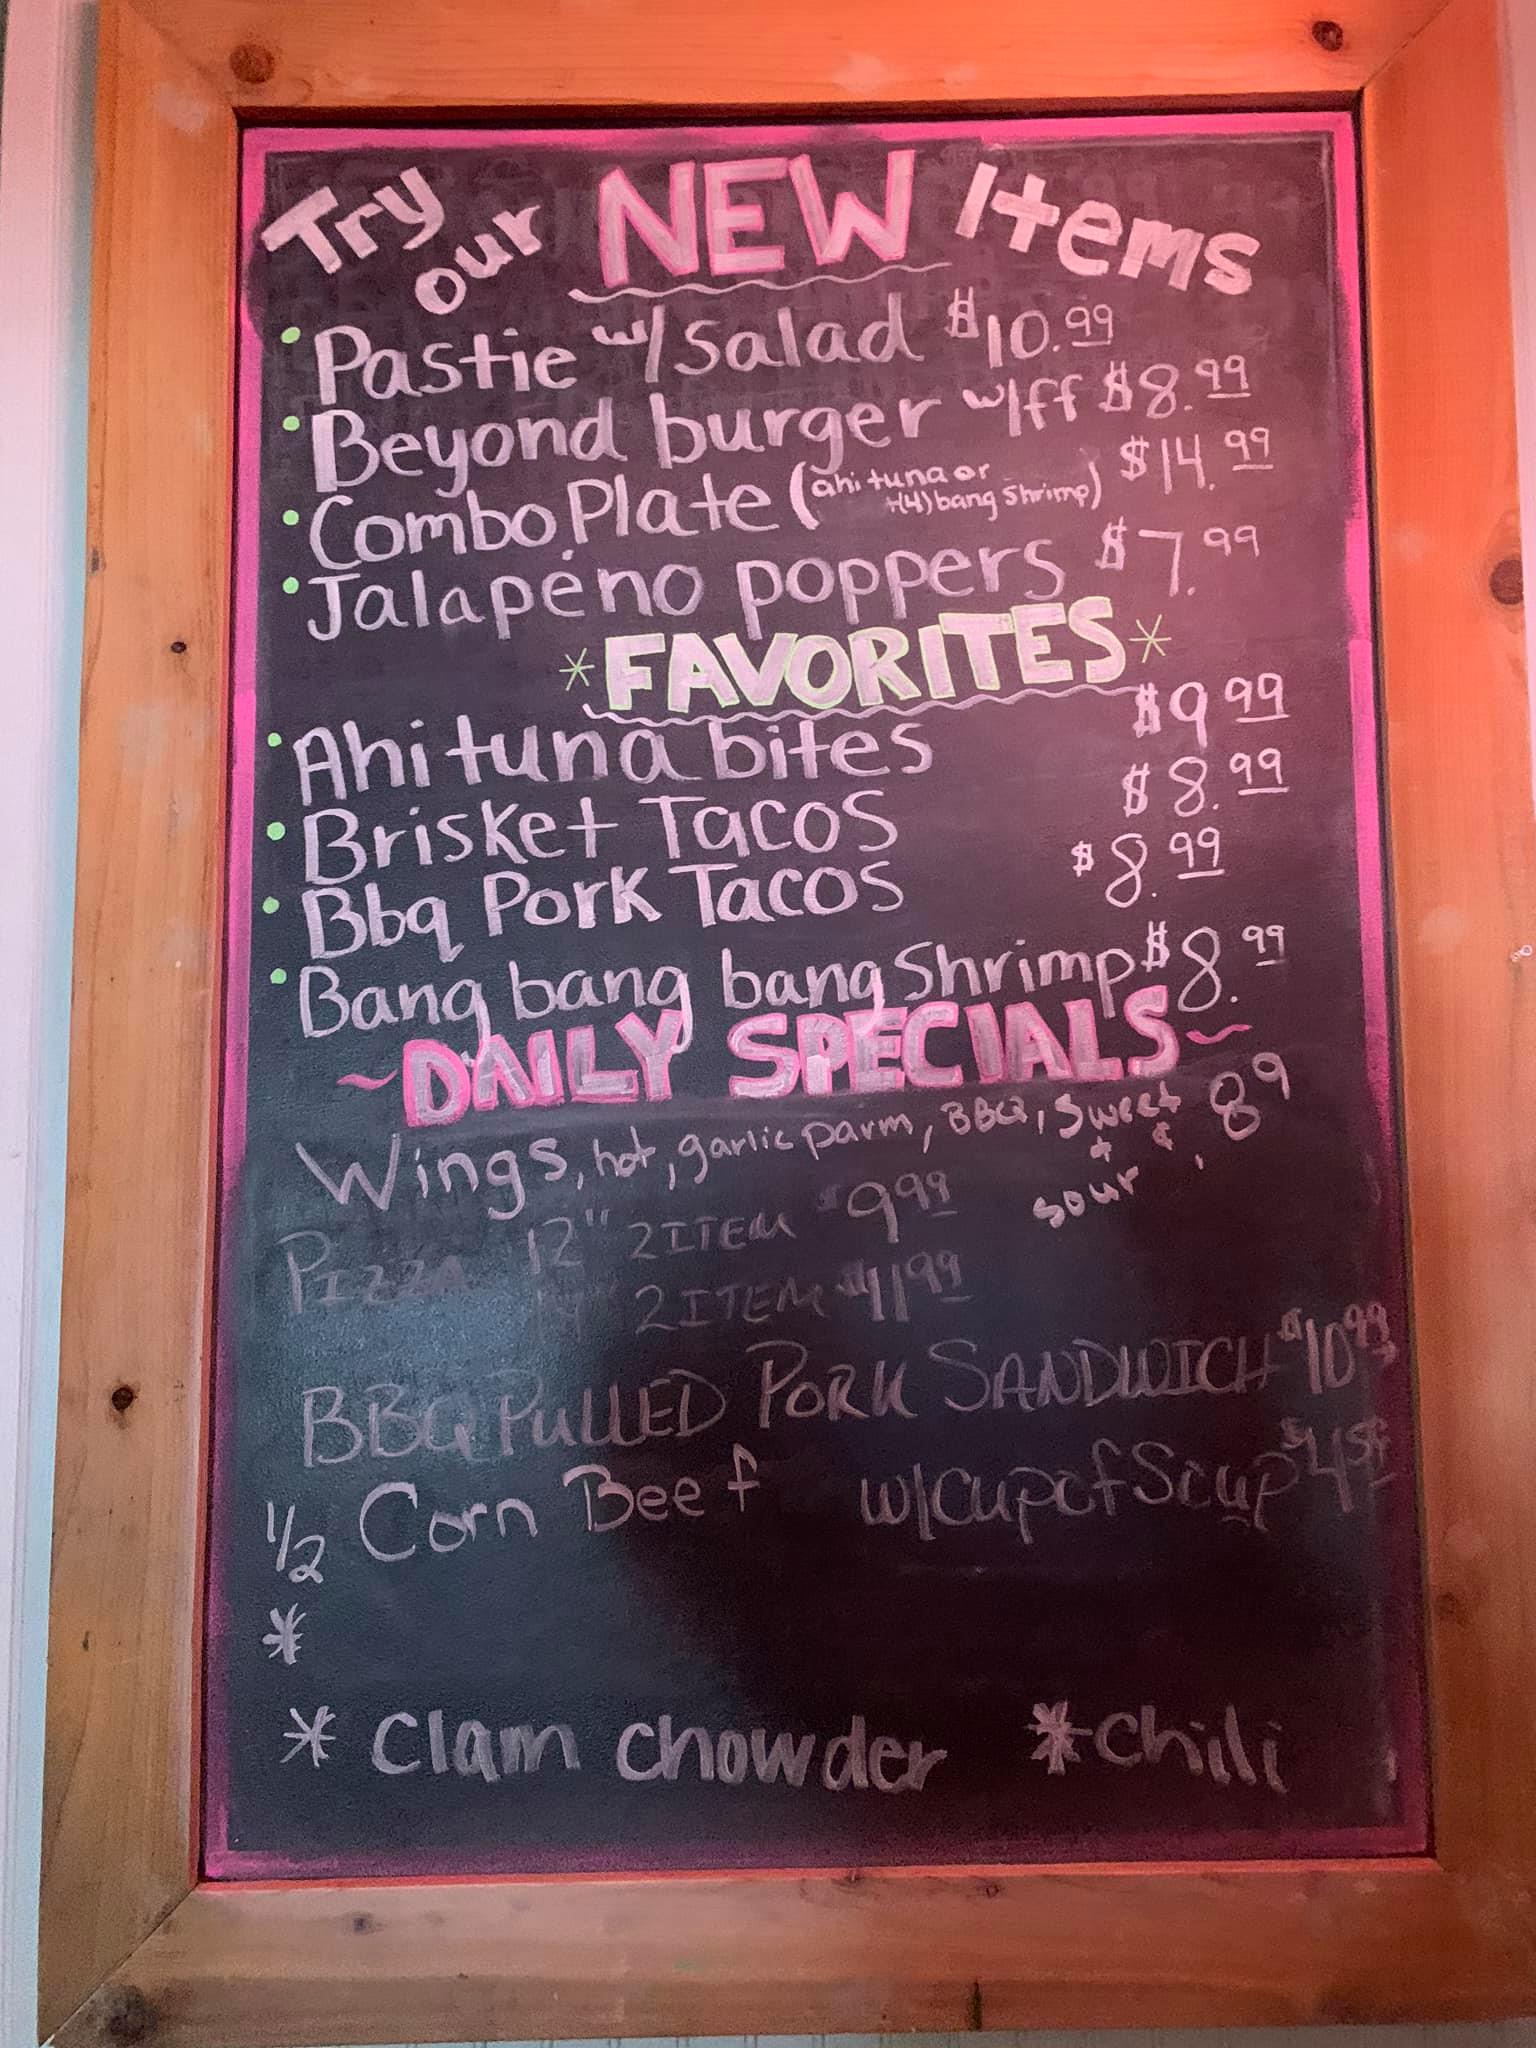 Try our NEW Items
Pastie w/ Salad $10.99
Beyond burger w/ff $8.99
Combo Plate (ahi tuna or +(4) bang shrimp) $14.99
Jalapeno poppers $7.99
*FAVORITES*
Ahi tuna bites $9.99
Brisket Tacos $8.99
Bbq Pork Tacos $8.99
Bang bang bang shrimp $8.99
~DAILY SPECIALS~
Wings, hot, garlic parm, BBQ, Sweet + sour
PIZZA 12" 2 ITEM $9.99
2 ITEM $11.99
BBQ PULLED PORK SANDWICH $10.99
1/2 Corn Beef w/ Cup of Soup
*
* Clam chowder * Chili